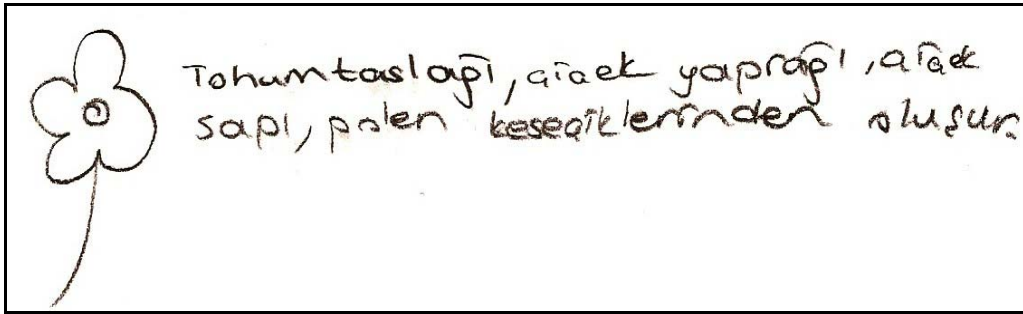 Tohumtaslağı, çiçek yaprağı, çiçek
sapı, polen keseciklerinden oluşur.